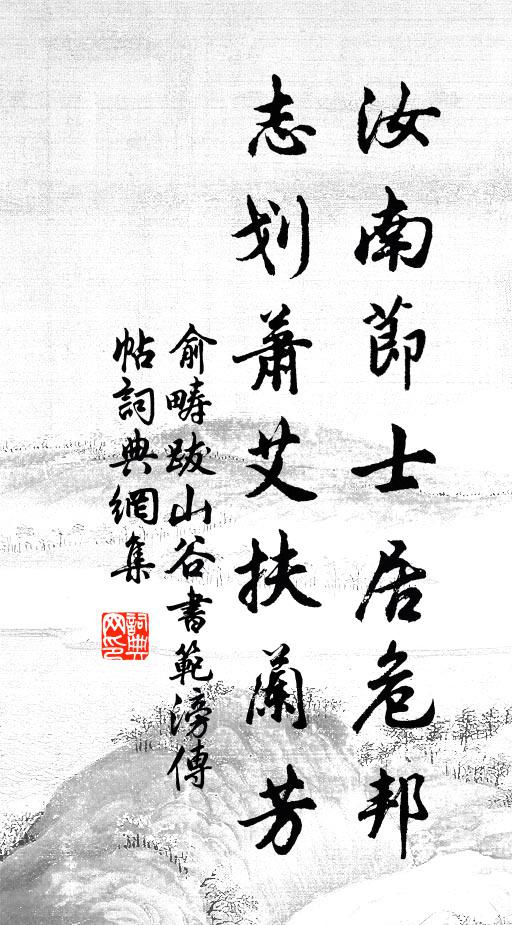 汝南節士居危邦
志划蕭艾扶蘭芳
俞疇跋山谷書範滂傳
帖詞典網集
詞典网印